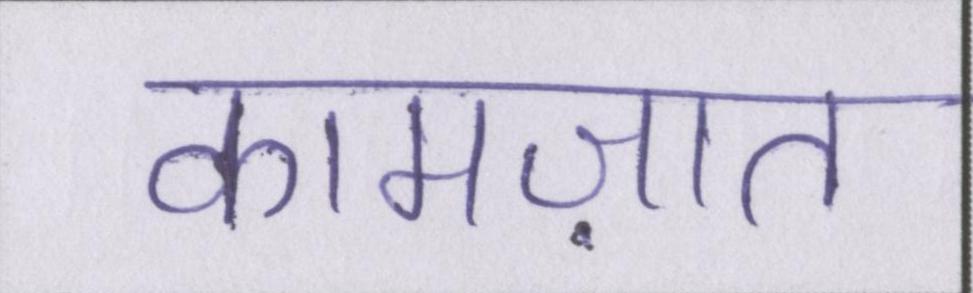 कामज़ात